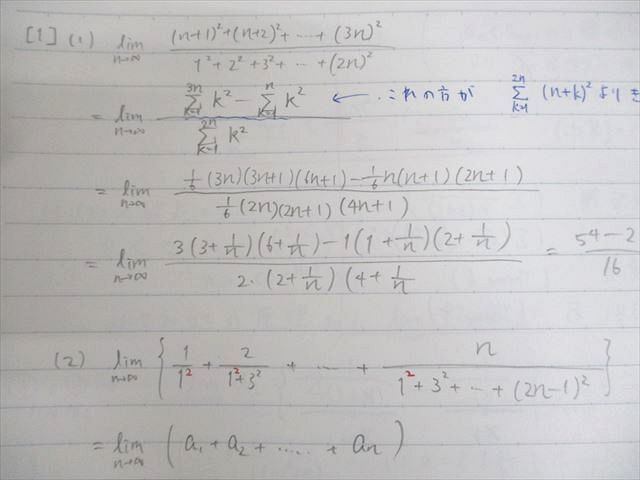 [1] (1) lim n→∞ ((n+1)²+(n+2)²+ ‥‥ + (3n)²) / (1²+2²+3²+ ‥‥ +(2n)²)
= lim n→∞ (Σ_{k=1}^{3n} k² − Σ_{k=1}^{n} k²) / (Σ_{k=1}^{2n} k²) ← これの方が Σ_{k=1}^{2n} (n+k)² よりも
= lim n→∞ (1/6 (3n)(3n+1)(6n+1) − 1/6 n(n+1)(2n+1)) / (1/6 (2n)(2n+1)(4n+1))
= lim n→∞ (3(3+1/n)(6+1/n) − 1(1+1/n)(2+1/n)) / (2·(2+1/n)(4+1/n) = (54−2)/16
(2) lim n→∞ { 1/1² + 2/(1²+3²) + ‥‥ + n/(1²+3²+ ‥‥ +(2n−1)²) }
= lim n→∞ (a₁+a₂+ ‥‥‥ + aₙ)